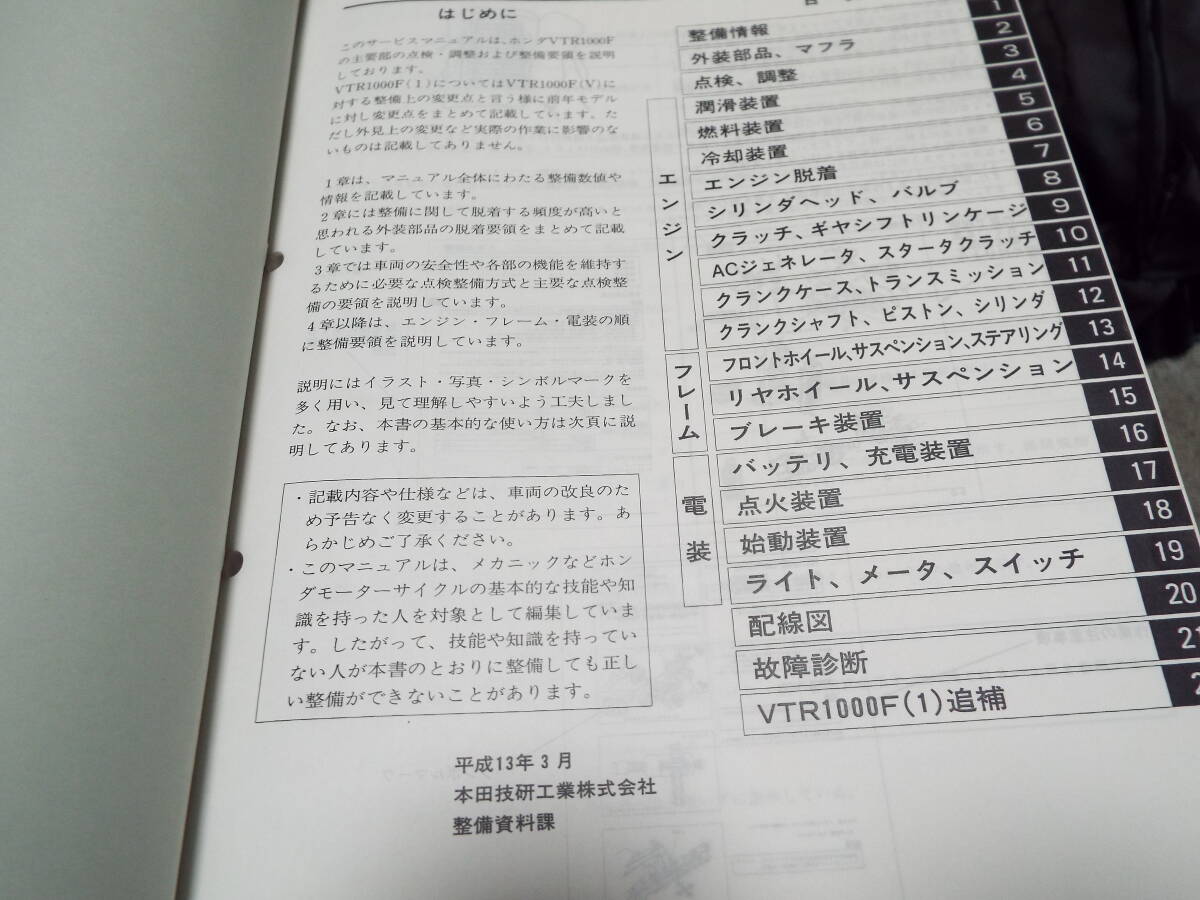 はじめに
このサービスマニュアルは、ホンダVTR1000F
の主要部の点検・調整および整備要領を説明
しております。
VTR1000F(1)についてはVTR1000F(V)に
対する整備上の変更点と言う様に前年モデル
に対し変更点をまとめて記載しています。た
だし外見上の変更など実際の作業に影響のな
いものは記載してありません。
1章は、マニュアル全体にわたる整備数値や
情報を記載しています。
2章には整備に関して脱着する頻度が高いと
思われる外装部品の脱着要領をまとめて記載
しています。
3章では車両の安全性や各部の機能を維持す
るために必要な点検整備方式と主要な点検整
備の要領を説明しています。
4章以降は、エンジン・フレーム・電装の順
に整備要領を説明しています。
説明にはイラスト・写真・シンボルマークを
多く用い、見て理解しやすいよう工夫しまし
た。なお、本書の基本的な使い方は次頁に説
明してあります。
・記載内容や仕様などは、車両の改良のた
め予告なく変更することがあります。あ
らかじめご了承ください。
・このマニュアルは、メカニックなどホン
ダモーターサイクルの基本的な技能や知
識を持った人を対象として編集していま
す。したがって、技能や知識を持ってい
ない人が本書のとおりに整備しても正し
い整備ができないことがあります。
平成13年3月
本田技研工業株式会社
整備資料課
整備情報
1
外装部品、マフラ
2
点検、調整
3
エンジン
潤滑装置
4
燃料装置
5
冷却装置
6
エンジン脱着
7
シリンダヘッド、バルブ
8
クラッチ、ギヤシフトリンケージ
9
ACジェネレータ、スタータクラッチ
10
クランクケース、トランスミッション
11
クランクシャフト、ピストン、シリンダ
12
フレーム
フロントホイール、サスペンション、ステアリング
13
リヤホイール、サスペンション
14
ブレーキ装置
15
電装
バッテリ、充電装置
16
点火装置
17
始動装置
18
ライト、メータ、スイッチ
19
配線図
20
故障診断
21
VTR1000F(1)追補